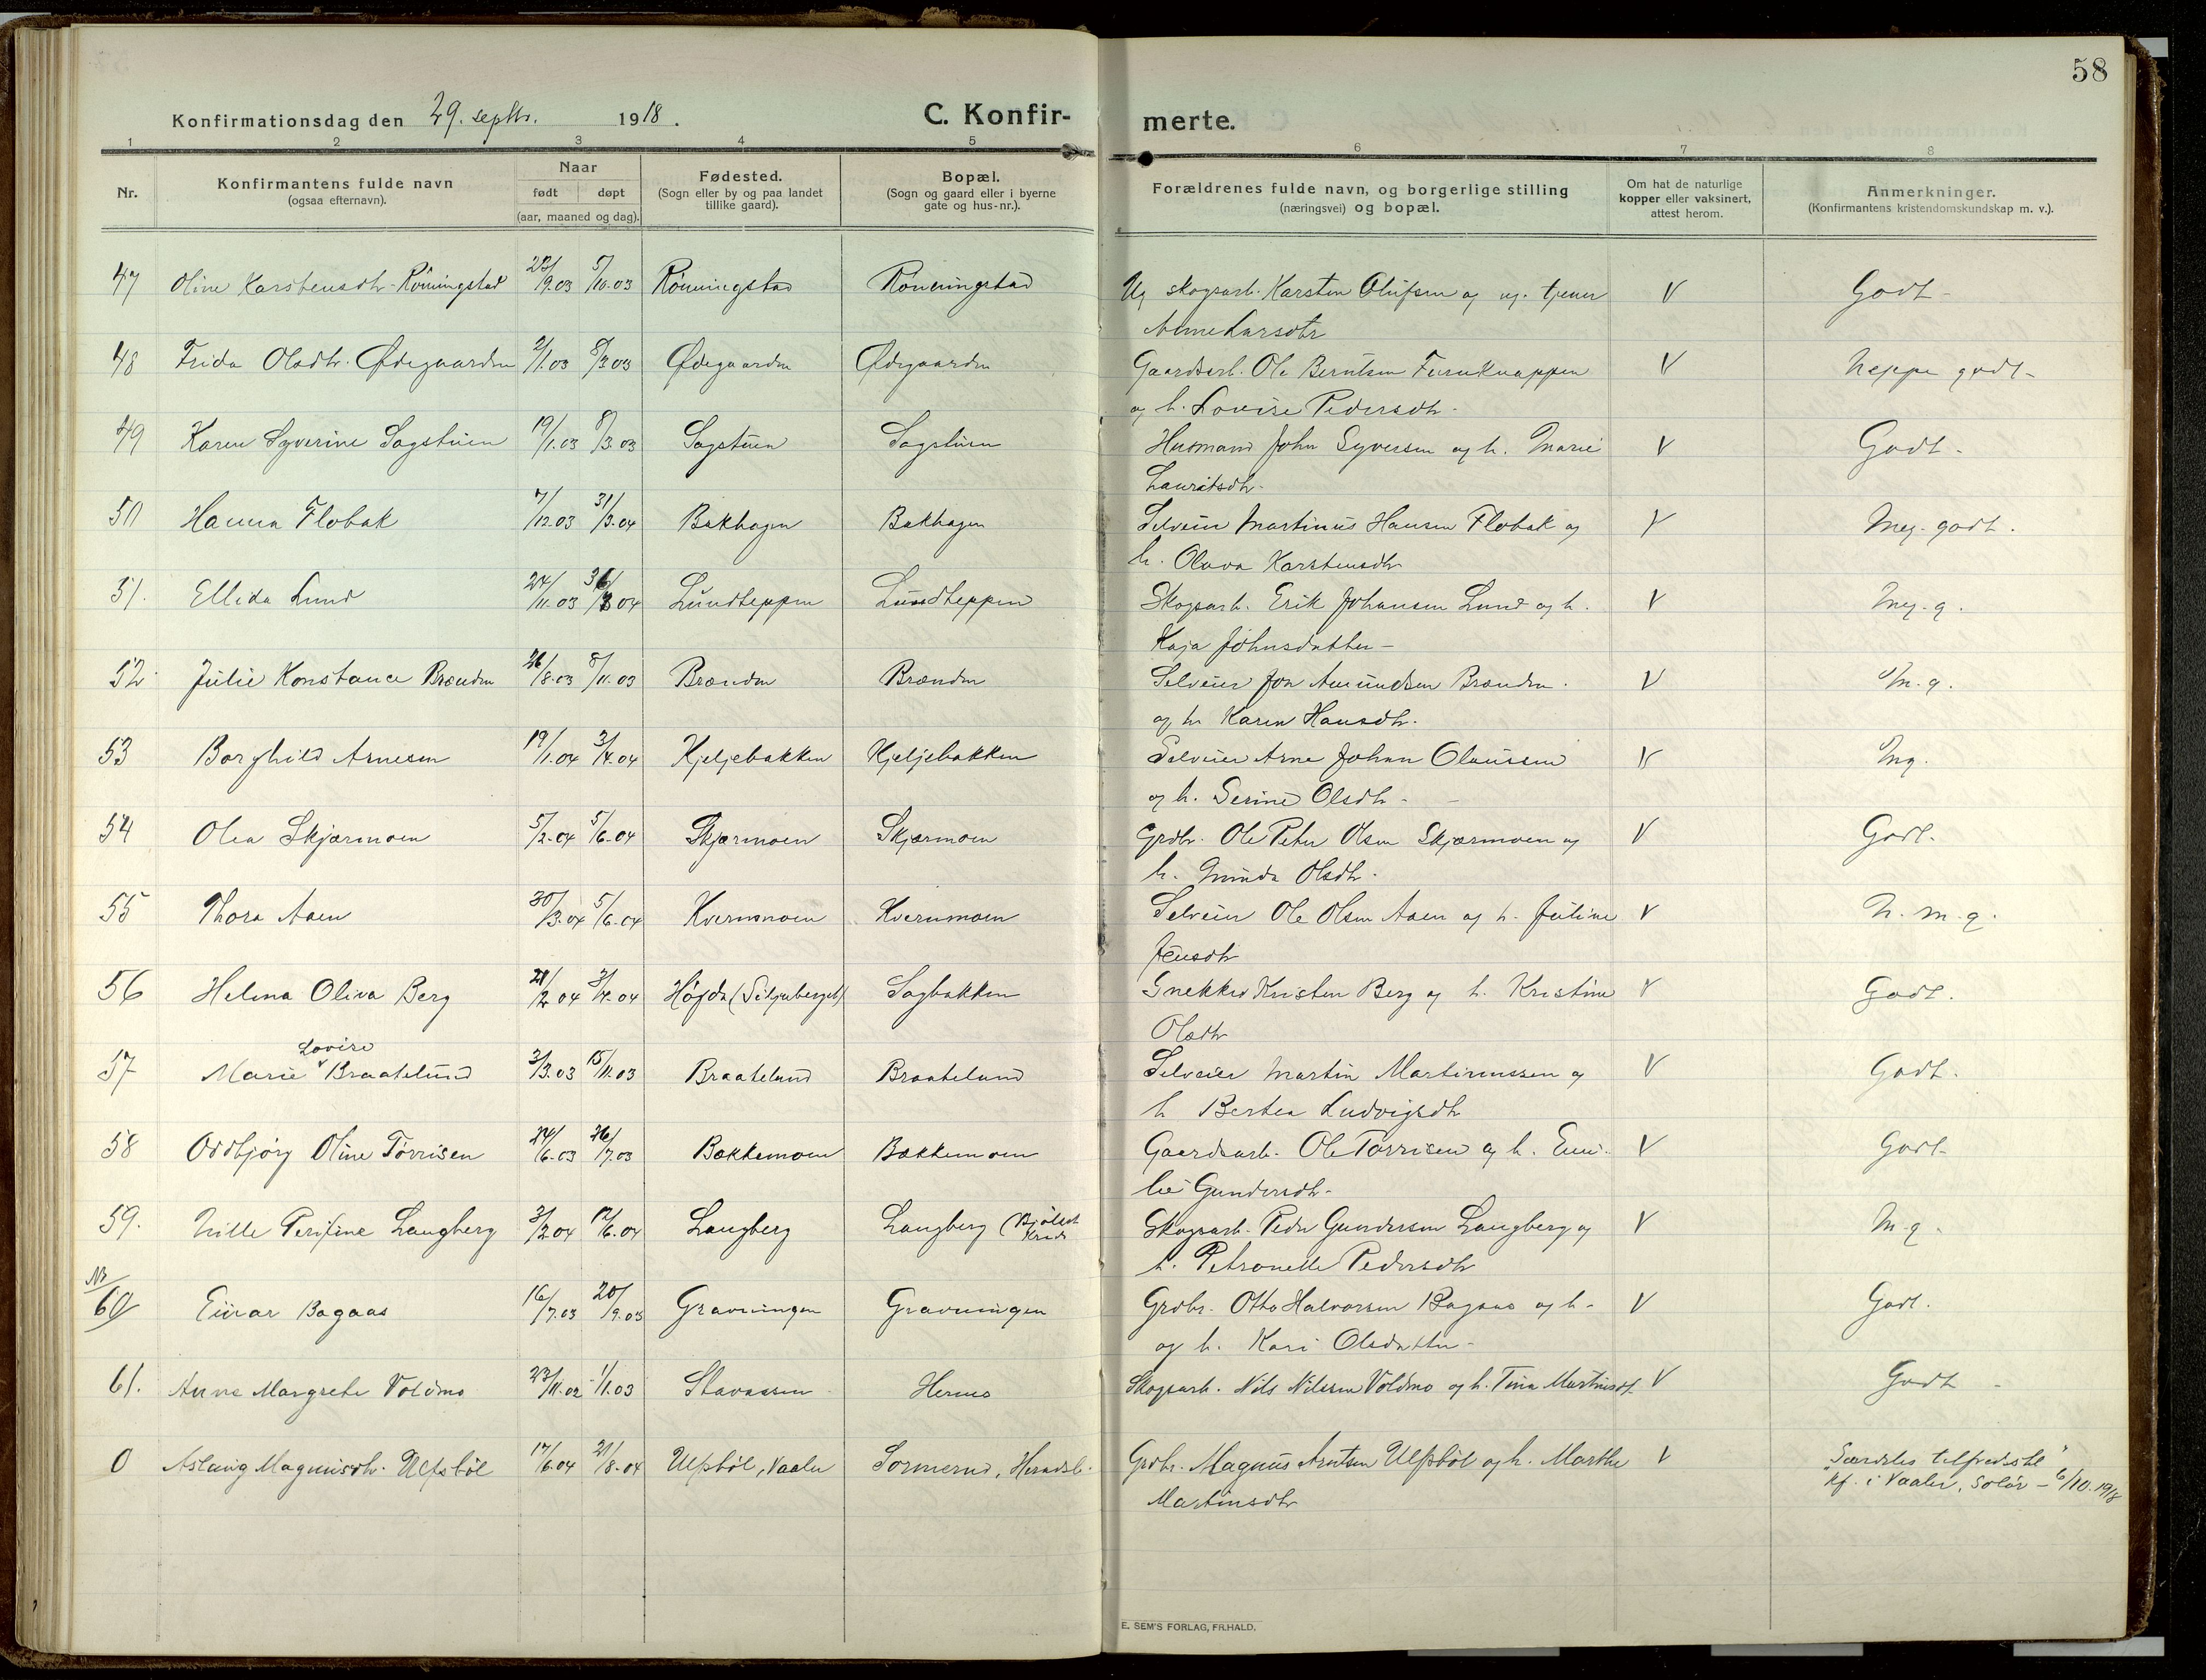 58
Konfirmationsdag den 29. septbr. 1918.
C. Konfir-
merte.
1 2 3 4 5 6 7 8
Nr.
Konfirmantens fulde navn
(ogsaa efternavn).
Naar
født døpt
(aar, maaned og dag).
Fødested.
(Sogn eller by og paa landet
tillike gaard).
Bopæl.
(Sogn og gaard eller i byerne
gate og hus-nr.).
Forældrenes fulde navn, og borgerlige stilling
(næringsvei) og bopæl.
Om hat de naturlige
kopper eller vaksinert,
attest herom.
Anmerkninger.
(Konfirmantens kristendomskundskap m. v.).
47 Oline Karstensdtr. Rönningstad 23/9.03 5/10.03 Rönningstad Rönningstad Ug skogsarb. Karsten Olufsen og ug. tjener V Godt -
Anne Larsdtr
48 Frida Olsdtr. Ødegaarden 2/1.03 8/3.03 Ødegaarden Ødegaarden Gaardsarb. Ole Berntsen Furuknappen V Neppe godt -
og h. Lovise Pedersdtr -
49 Karen Syverine Sagstuen 19/1.03 8/3.03 Sagstuen Sagstuen Husmand John Syversen og h. Marie V Godt -
Lauritsdtr -
50 Hanna Flobak 7/12.03 31/3.04 Bakhagen Bakhagen Selveier Martinus Hansen Flobak og V Meg. godt.
h. Olava Karstensdtr
51. Ellida Lund 24/11.03 3/3 04 Lundteppen Lundteppen Skogsarb. Erik Johansen Lund og h. V Meg. g.
Kaja Johnsdatter -
52 Julie Konstance Brænden 26/8.03 8/11.03 Brænden Brænden Selveier Jon Amundsen Brænden. V M. g.
og h. Karen Hansdtr.
53 Borghild Arnesen 19/1.04 3/4.04 Kjeljebakken Kjeljebakken Selveier Arne Johan Olaussen V Mg.
og h. Serine Olsdtr -
54 Olea Skjærmoen 5/2-04 5/6-04 Skjærmoen Skjærmoen Grdbr. Ole Peter Olsen Skjærmoen og V Godt.
h. Gunda Olsdtr.
55 Thora Aaen 30/3.04 5/6-04 Kvernmoen Kvernmoen Selveier Ole Olsen Aaen og h. Juline V N. m. g.
Jensdtr
56 Helena Oliva Berg 21/2 04 3/4.04 Højda (Siljuberget) Sagbakken Snekker Kristen Berg og h. Kristine V Godt.
Olsdtr
Lovise
57 Marie Braatelund 3/3.03 15/11.03 Braatelund Braatelund Selveier Martin Martinussen og V Godt.
h Bertea Ludvigsdtr
58 Oddbjörg Oline Törrisen 24/6-03 26/7.03 Bakkemoen Bakkemoen Gaardsarb. Ole Törrisen og h. Emi- V Godt-
lie Gundersdtr -
59. Nille Perifine Langberg 3/2 04 12/6.04 Langberg Langberg Skogsarb. Peder Gundersen Langberg og V M-g.
h. Petronelle Pedersdtr
60 Einar Bagaas 16/7.03 20/9.03 Gravningen Gravningen Grdbr. Otto Halvorsen Bagaas og h- V Godt.
og h. Kari Olsdatter -
61. Anna Margrete Voldmo 23/11.02 1/1.03 Stavaasen Hermo Skogsarb. Nils Nilssen Voldmo og h. Tina Martinsdt. V Godt -
0 Aslaug Magnusdtr. Ulfsböl 17/6.04 21/8-04 Ulfsböl, Vaaler Sormerud, Grdbr. Magnus Arntsen Ulfsböl og h. Marthe V Særdeles tilfredsst."
Martinsdtr kf. i Vaaler, Solör - 6/10.1918
E. SEM'S FORLAG, FR.HALD.